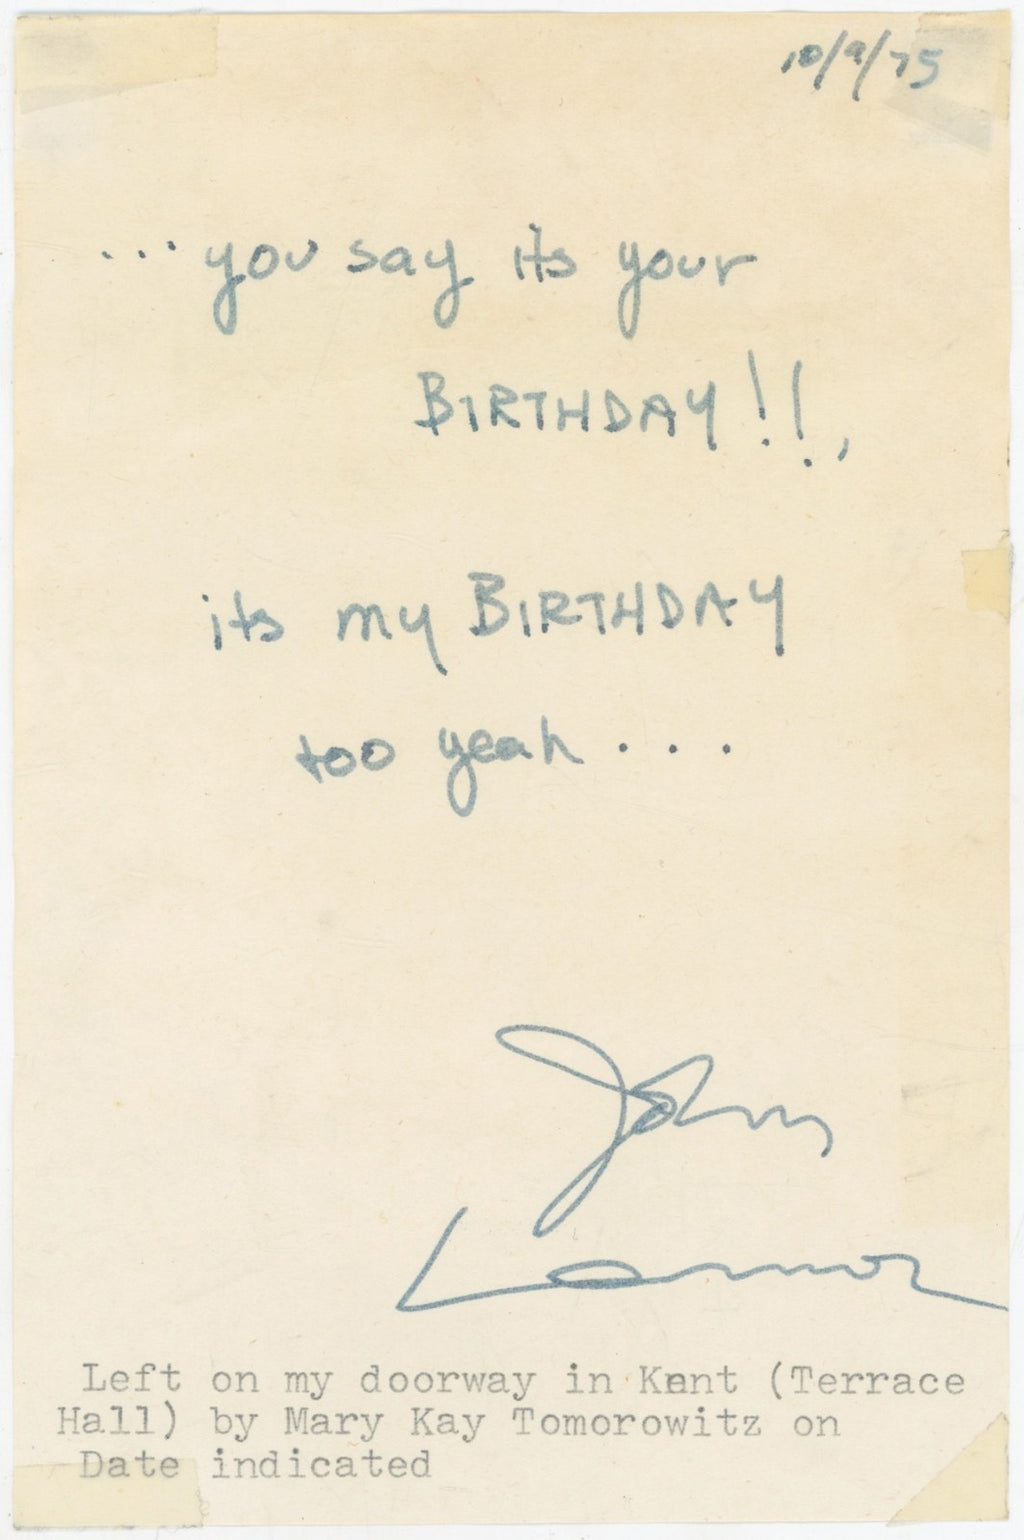 10/9/75
... you say its your
BIRTHDAY!!,
its my BIRTHDAY
too yeah...
John
Lennon
Left on my doorway in Kent (Terrace
Hall) by Mary Kay Tomorowitz on
Date indicated